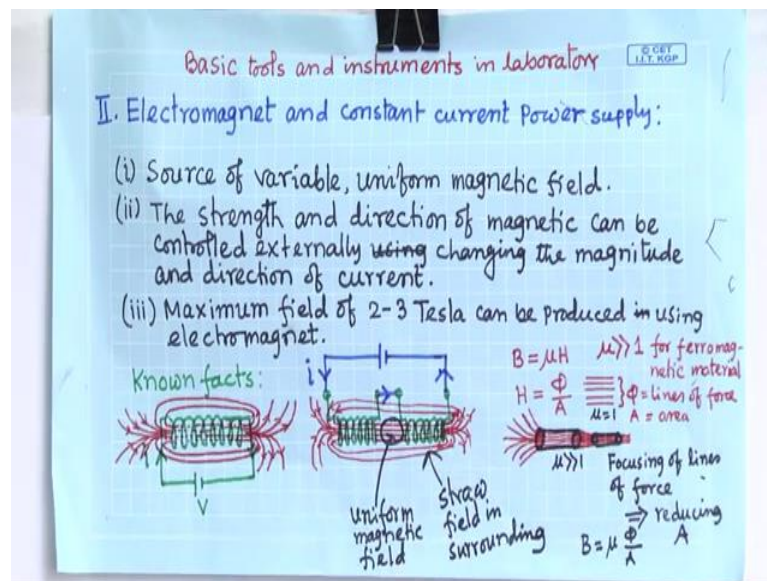 Basic tools and instruments in laboratory
© CET
I.I.T. KGP
II. Electromagnet and constant current Power supply:
(i) Source of variable, uniform magnetic field.
(ii) The strength and direction of magnetic can be
controlled externally using changing the magnitude
and direction of current.
(iii) Maximum field of 2-3 Tesla can be produced in using
electromagnet.
Known facts:
i
V
uniform
magnetic
field
straw
field in
surrounding
B = μH
μ>>1 for ferromag-
netic material
H = Φ/A
μ=1
Φ = lines of force
A = area
μ>>1
Focusing of lines
of force
⇒ reducing
A
B = μ Φ/A